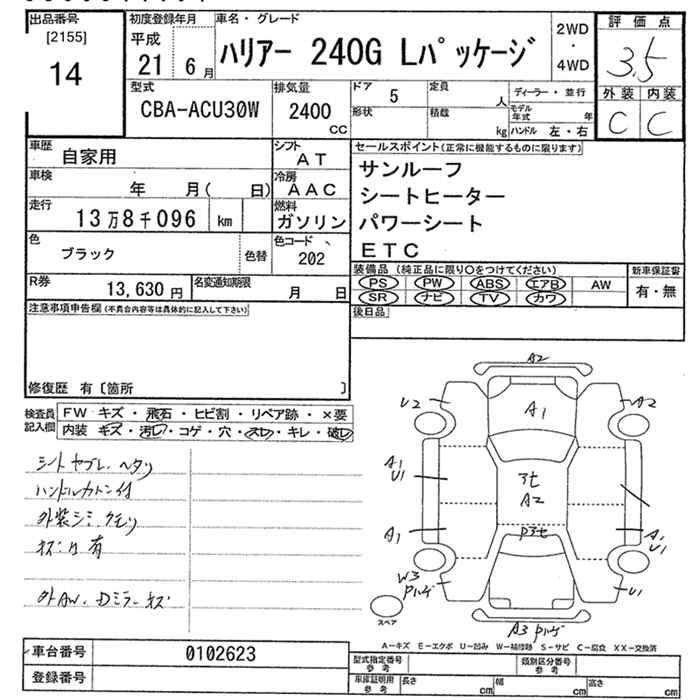 出品番号
[2155]
14
初度登録年月
平成
21 6月
車名・グレード
ハリアー 240G Lパッケージ
2WD
・
4WD
評価点
3.5
外装 内装
C C
型式
CBA-ACU30W
排気量
2400
CC
ドア 5
定員 人
形状
積載 kg
ディーラー・並行
モデル年式 年
ハンドル 左・右
車歴 自家用
シフト AT
車検 年 月( 日)
冷房 AAC
走行 13万8千096 km
燃料 ガソリン
色 ブラック
色替
色コード 202
R券 13,630円
名変通知期限 月 日
セールスポイント(正常に機能するものに限ります)
サンルーフ
シートヒーター
パワーシート
ETC
装備品 (純正品に限り○をつけてください)
PS PW ABS エアB AW
SR ナビ TV カワ
新車保証書
有・無
後日品
注意事項申告欄(不具合内容等は具体的に記入して下さい)
修復歴 有〔箇所 〕
検査員記入欄
FW キズ・飛石・ヒビ割・リペア跡・×要
内装 キズ・汚レ・コゲ・穴・スレ・キレ・破レ
シートヤブレ、ヘタリ
外装シミ、クモリ
キズ凹有
外AW、Dミラーキズ
A2
U2
A1
A2
A1
U1
A2
A1
A1
U1
W3
Pハゲ
U1
A3 Pハゲ
スペア
A-キズ E-エクボ U-凹み W-補修跡 S-サビ C-腐食 XX-交換済
車台番号 0102623
登録番号
型式指定番号
参考
類別区分番号
参考
車庫証明用
参考
長さ cm 幅 cm 高さ cm